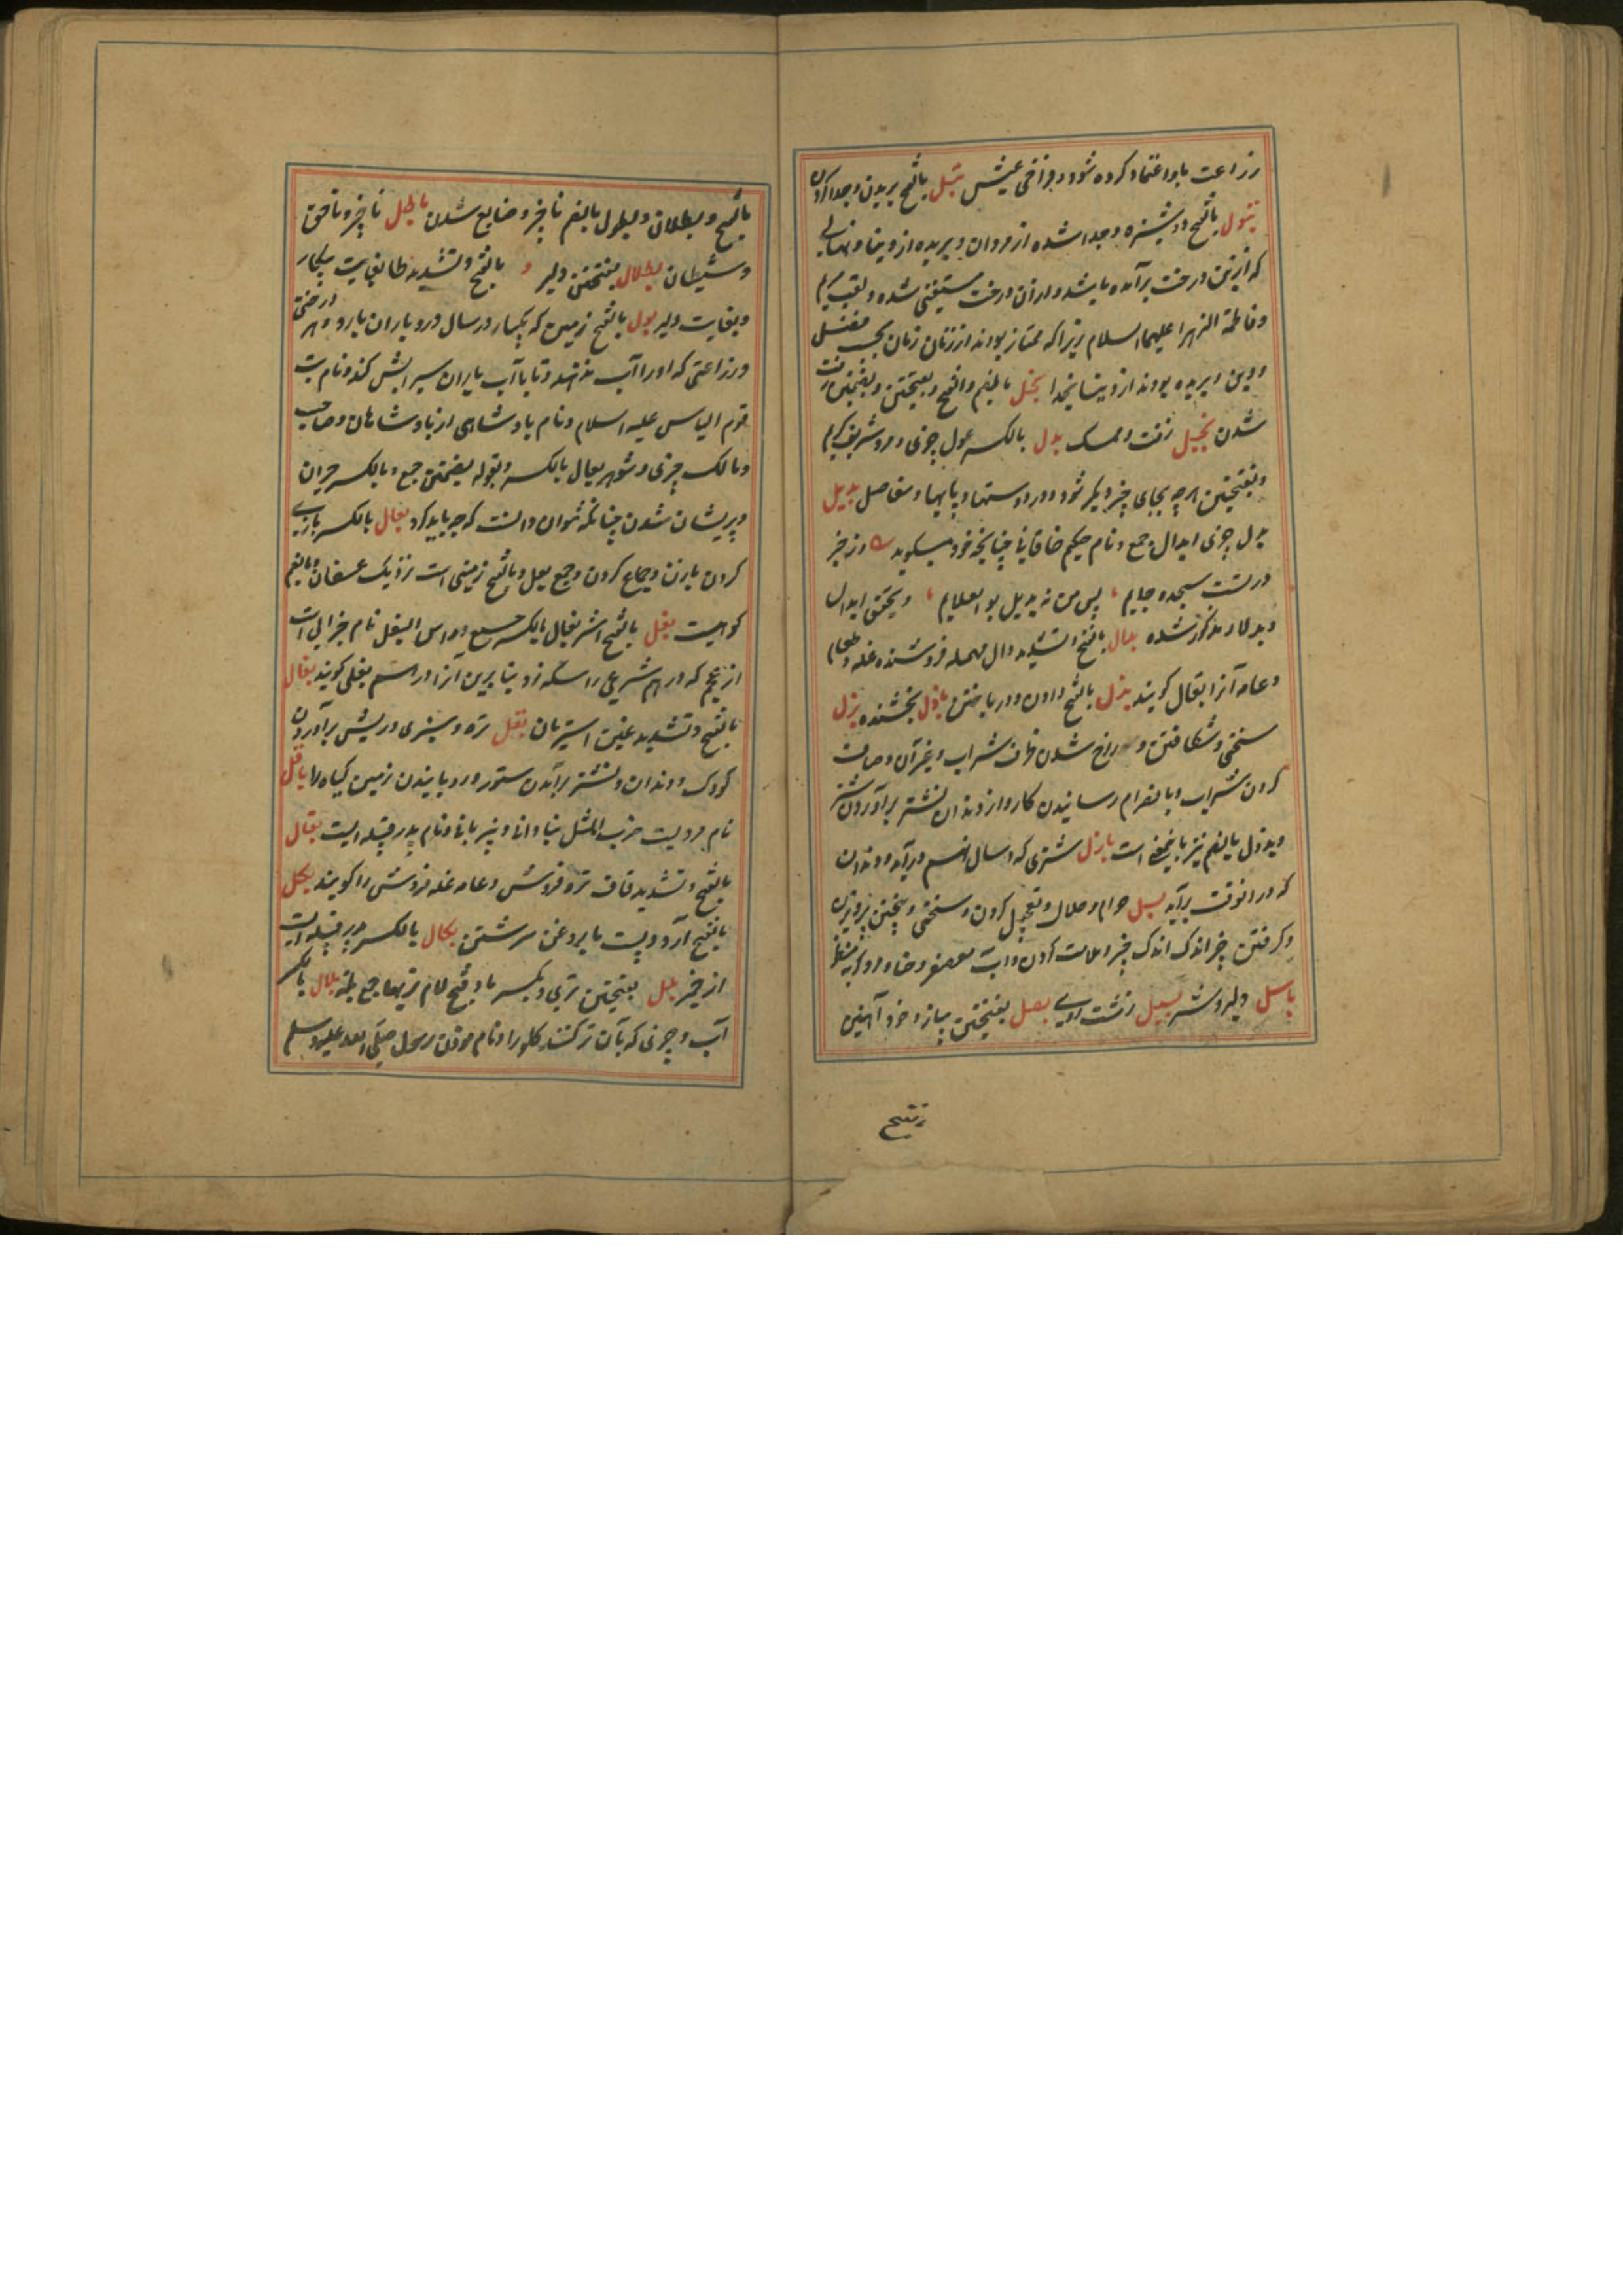 زراعت باو اعتماد کرده شود و فراخی عیش بتل بالفتح بریدن و جدا کردن
بتول بالفتح دوشیزه و جدا شده از مردان و بریده از دنیا و نهالی
که از بن درخت برآمده باشد و از آن درخت مستغنی شده و لقب مریم
و فاطمة الزهرا علیهما السلام زیرا که ممتاز بودند از زنان زمان بحسب فضل
و دین و بریده بودند از دنیا بخدا بخل بالضم و الفتح و بفتحتین و بضمتین زفت
شدن بخیل زفت و ممسک بدل بالکسر عول چیزی و مرد شریف کریم
و بفتحتین هر چه بجای چیز دیگر شود و درد دستها و پایها و مفاصل بدیل
بدل چیزی ابدال جمع و نام حکیم خاقانی چنانچه خود میگوید
در سنت پس من نه بدیل بو العلایم و تحقیق ابدال
و بدلا مذکور شده بدال بالفتح و تشدید دال مهمله فروشنده غله و طعام
و عامه آنرا بقال گویند بذل بالفتح دادن و در باختن باذل بخشنده بزل
سختی و شکافتن و سوراخ شدن ظرف شراب و غیر آن و صاف
کردن شراب و بانصرام رسانیدن کار و از دندان نشتر برآوردن شتر
و بزول بالضم نیز باینمعنی است بازل شتری که در سال نهم درآید و دندان
که در آنوقت برآید بسل حرام و حلال و تعجیل کردن و سختی و بیختن پرویزن
و گرفتن چیز اندک اندک
باسل دلیر و شیر بسیل زشت روی بصل بفتحتین پیاز و خود آهنین
بالفتح و بطلان و بطول بالضم ناچیز و ضایع شدن باطل ناچیز و ناحق
و شیطان بطلال بفتحتین دلیر و بالفتح و تشدید طا بغایت بیکار
و بغایت دلیر بعل بالفتح زمین که یکبار در سال درو باران بارد و هر درختی
و زراعتی که او را آب ندهند و تا بآب باران سیرابش کند و نام بت
قوم الیاس علیه السلام و نام پادشاهی از پادشاهان و صاحب
و مالک چیزی و شوهر بعال بالکسر و بعوله بضمتین جمع و بالکسر حیران
و پریشان شدن چنانکه نتوان دانست که چه باید کرد بعال بالکسر بازی
کردن با زن و جماع کردن و جمع بعل و بالفتح زمینی است نزدیک عسفان و بالضم
کوهیست بغل بالفتح استر بغال بالکسر جمع و راس البغل نام ضرابی است
از عجم که درهم شرعی را سکه زد بنا برین آنرا درهم بغلی گویند بغال
بالفتح و تشدید غین استربان بقل تره و سبزی و ریش برآوردن
کودک و دندان و نشتر برآمدن ستور و رویانیدن زمین گیاه را باقل
نام مردیست ضرب المثل بنادانی و بیزبانی و نام پدر قبیله ایست بقال
بالفتح و تشدید قاف تره فروش و عامه غله فروش را گویند بکل
بالفتح آرد و پست با روغن سرشتن بکال بالکسر پدر قبیله ایست
از حمیر بلل بفتحتین تری و بکسر با و فتح لام تریها جمع بلة بلال بالکسر
آب و چیزی که بآن تر کنند گلو را و نام موذن رسول صلی الله علیه وسلم